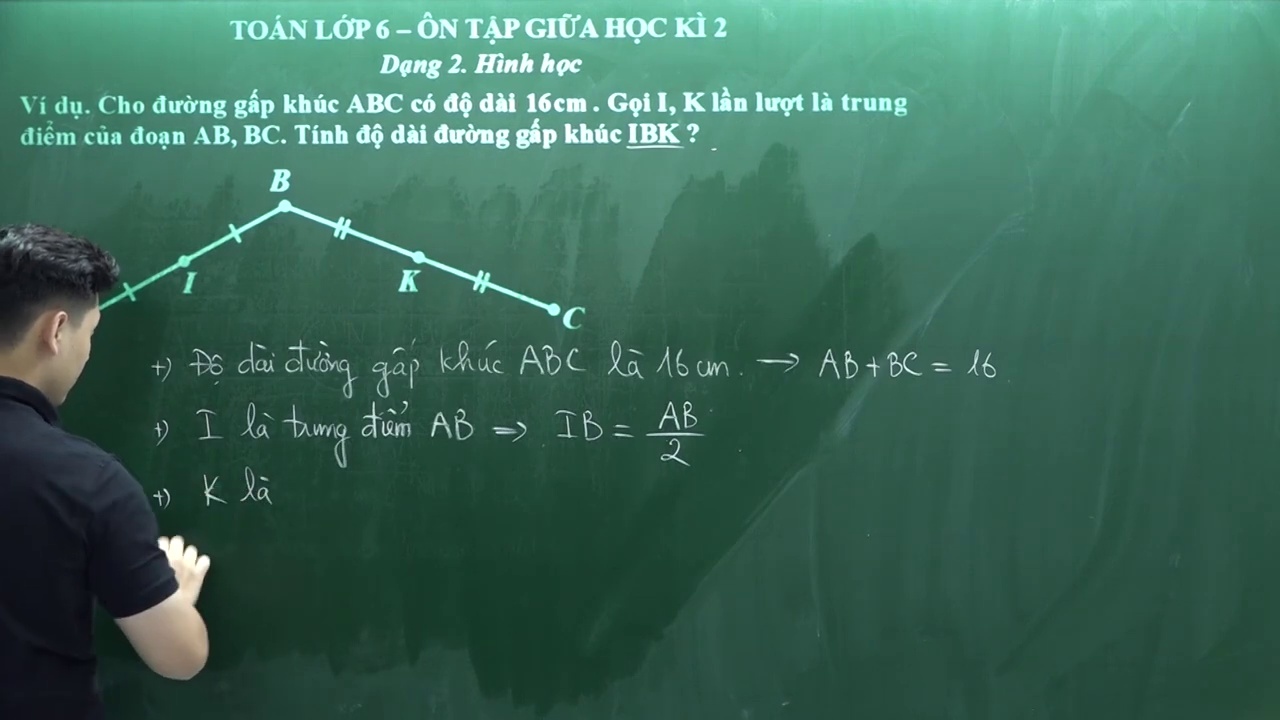 TOÁN LỚP 6 – ÔN TẬP GIỮA HỌC KÌ 2
Dạng 2. Hình học
Ví dụ. Cho đường gấp khúc ABC có độ dài 16cm . Gọi I, K lần lượt là trung
điểm của đoạn AB, BC. Tính độ dài đường gấp khúc IBK ?
B
I
K
C
+) Độ dài đường gấp khúc ABC là 16 cm. → AB + BC = 16
+) I là trung điểm AB ⇒ IB = AB/2
+) K là